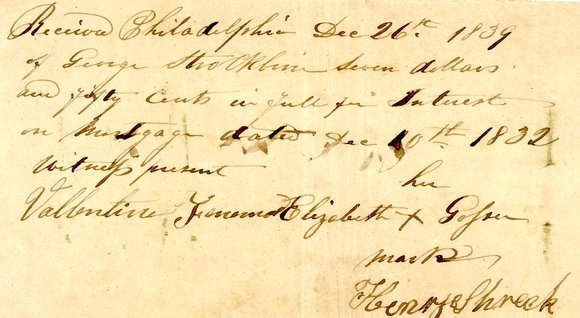 Received Philadelphia Dec 26th. 1839
of George Stockbine Seven dollars
and fifty Cents in full for Interest
on Mortgage dated Dec 10th. 1832
Witness present her
Vallentine Elizabeth X Gosser
mark
Henry Shreck